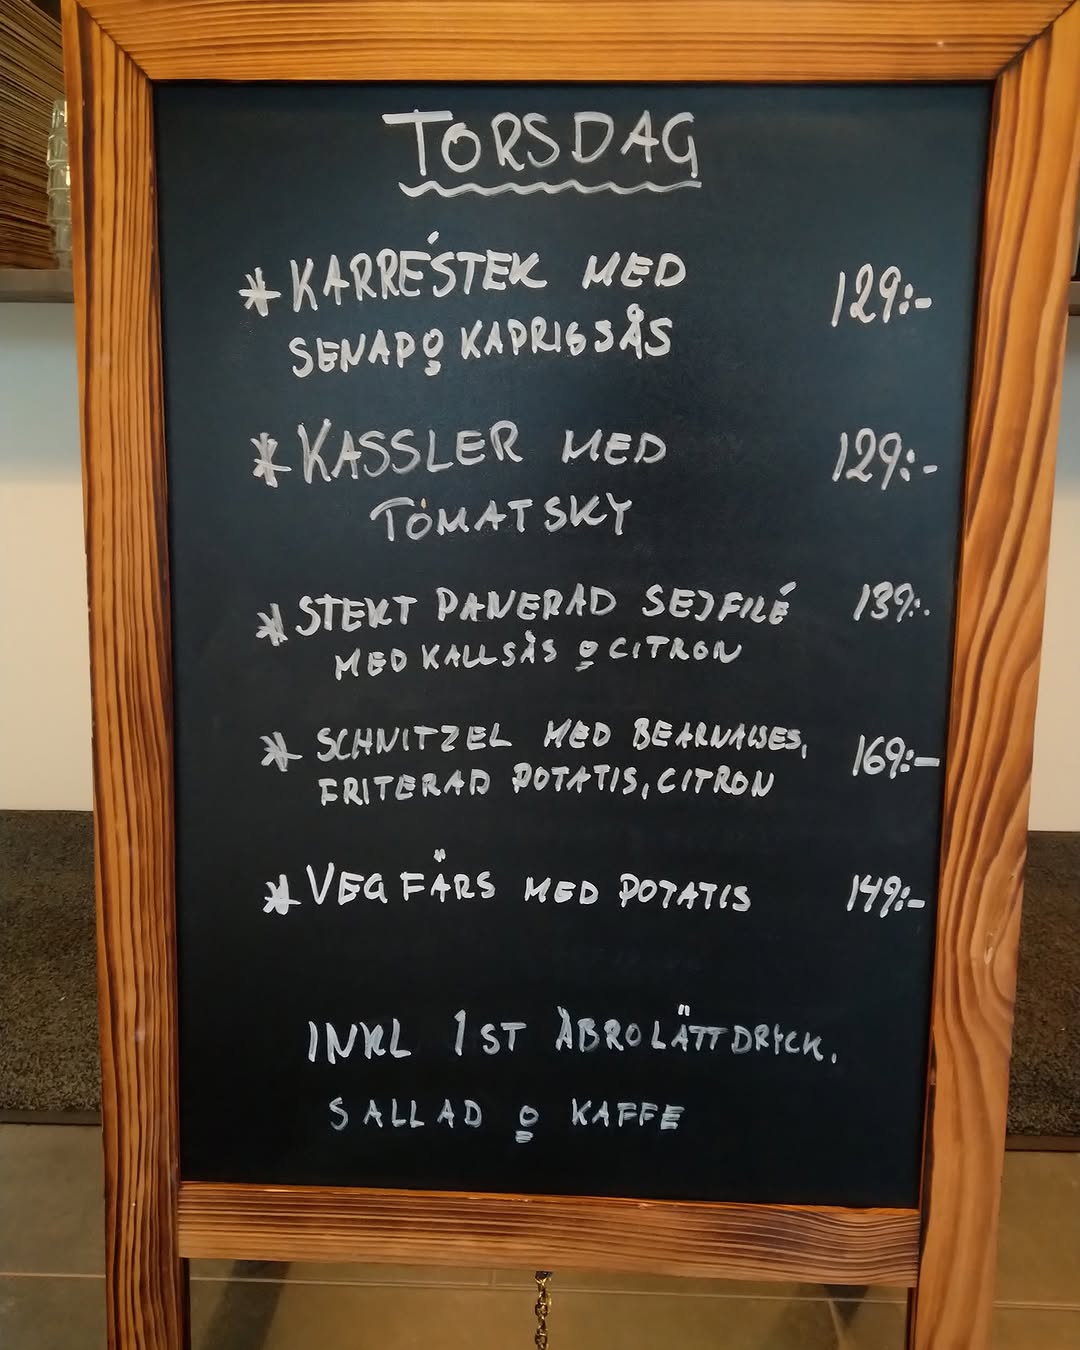 TORSDAG
* KARRÉSTEK MED 129:-
SENAP o KAPRISSÅS
* KASSLER MED 129:-
TOMATSKY
* STEKT PANERAD SEJFILÉ 139:-
MED KALLSÅS o CITRON
* SCHNITZEL MED BEARNAISES, 169:-
FRITERAD POTATIS, CITRON
* VEG FÄRS MED POTATIS 149:-
INKL 1 ST ÅBRO LÄTTDRYCK,
SALLAD o KAFFE